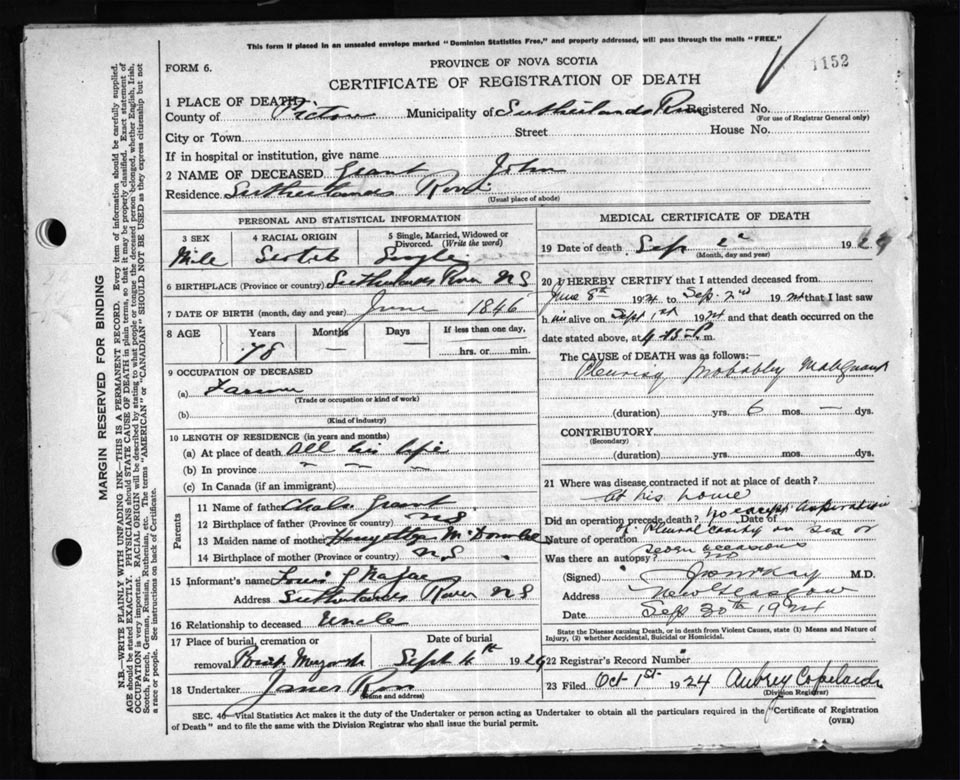 This form if placed in an unsealed envelope marked "Dominion Statistics Free," and properly addressed, will pass through the mails "FREE."
1152
FORM 6.
PROVINCE OF NOVA SCOTIA
CERTIFICATE OF REGISTRATION OF DEATH
1 PLACE OF DEATH
County of Pictou Municipality of Sutherlands River Registered No.
(For use of Registrar General only)
City or Town Street House No.
If in hospital or institution, give name
2 NAME OF DECEASED Grant John
Residence Sutherlands River
(Usual place of abode)
PERSONAL AND STATISTICAL INFORMATION
3 SEX 4 RACIAL ORIGIN 5 Single, Married, Widowed or Divorced. (Write the word)
Male Scotch Single
6 BIRTHPLACE (Province or country) Sutherlands River N S
7 DATE OF BIRTH (month, day and year) June 1846
8 AGE Years Months Days If less than one day,
78 — — hrs. or min.
9 OCCUPATION OF DECEASED
(a) Farmer
(Trade or occupation or kind of work)
(b)
(Kind of industry)
10 LENGTH OF RESIDENCE (in years and months)
(a) At place of death All his life
(b) In province " " "
(c) In Canada (if an immigrant)
Parents
11 Name of father Chals Grant
12 Birthplace of father (Province or country) N S
13 Maiden name of mother
14 Birthplace of mother (Province or country) N S
15 Informant's name Louis
Address Sutherlands River N S
16 Relationship to deceased Uncle
17 Place of burial, cremation or removal Date of burial
Sept 4th 1924
18 Undertaker James Ross
(Name and address)
MEDICAL CERTIFICATE OF DEATH
19 Date of death Sep 2 1924
(Month, day and year)
20 I HEREBY CERTIFY that I attended deceased from
June 8th 1924 to Sep. 2nd 1924 that I last saw
him alive on Sept 1st 1924 and that death occurred on the
date stated above, at P.m.
The CAUSE of DEATH was as follows:
Pleurisy probably Malignant
(duration) yrs. 6 mos. — dys.
CONTRIBUTORY
(Secondary)
(duration) yrs. mos. dys.
21 Where was disease contracted if not at place of death?
At his home
Did an operation precede death? no except aspiration Date of
Nature of operation of Pleural cavity on six or
seven occasions
Was there an autopsy? no
(Signed) M.D.
Address New Glasgow
Date Sep 30th 1924
State the Disease causing Death, or in death from Violent Causes, state (1) Means and Nature of Injury, (2) whether Accidental, Suicidal or Homicidal.
22 Registrar's Record Number
23 Filed Oct 1st 1924 Aubrey Copeland
(Division Registrar)
SEC. 40—Vital Statistics Act makes it the duty of the Undertaker or person acting as Undertaker to obtain all the particulars required in the Certificate of Registration
of Death" and to file the same with the Division Registrar who shall issue the burial permit.
(OVER)
MARGIN RESERVED FOR BINDING
N.B.—WRITE PLAINLY WITH UNFADING INK—THIS IS A PERMANENT RECORD. Every item of information should be carefully supplied.
AGE should be stated EXACTLY. PHYSICIANS should STATE CAUSE OF DEATH in plain terms, so that it may be properly classified. Exact statement of
OCCUPATION is very important. RACIAL ORIGIN will be described by stating to what people or tongue the deceased person belonged, whether English, Irish,
Scotch, French, German, Russian, Ruthenian, etc. The terms "AMERICAN" or "CANADIAN" SHOULD NOT BE USED as they express citizenship but not
a race or people. See instructions on back of Certificate.